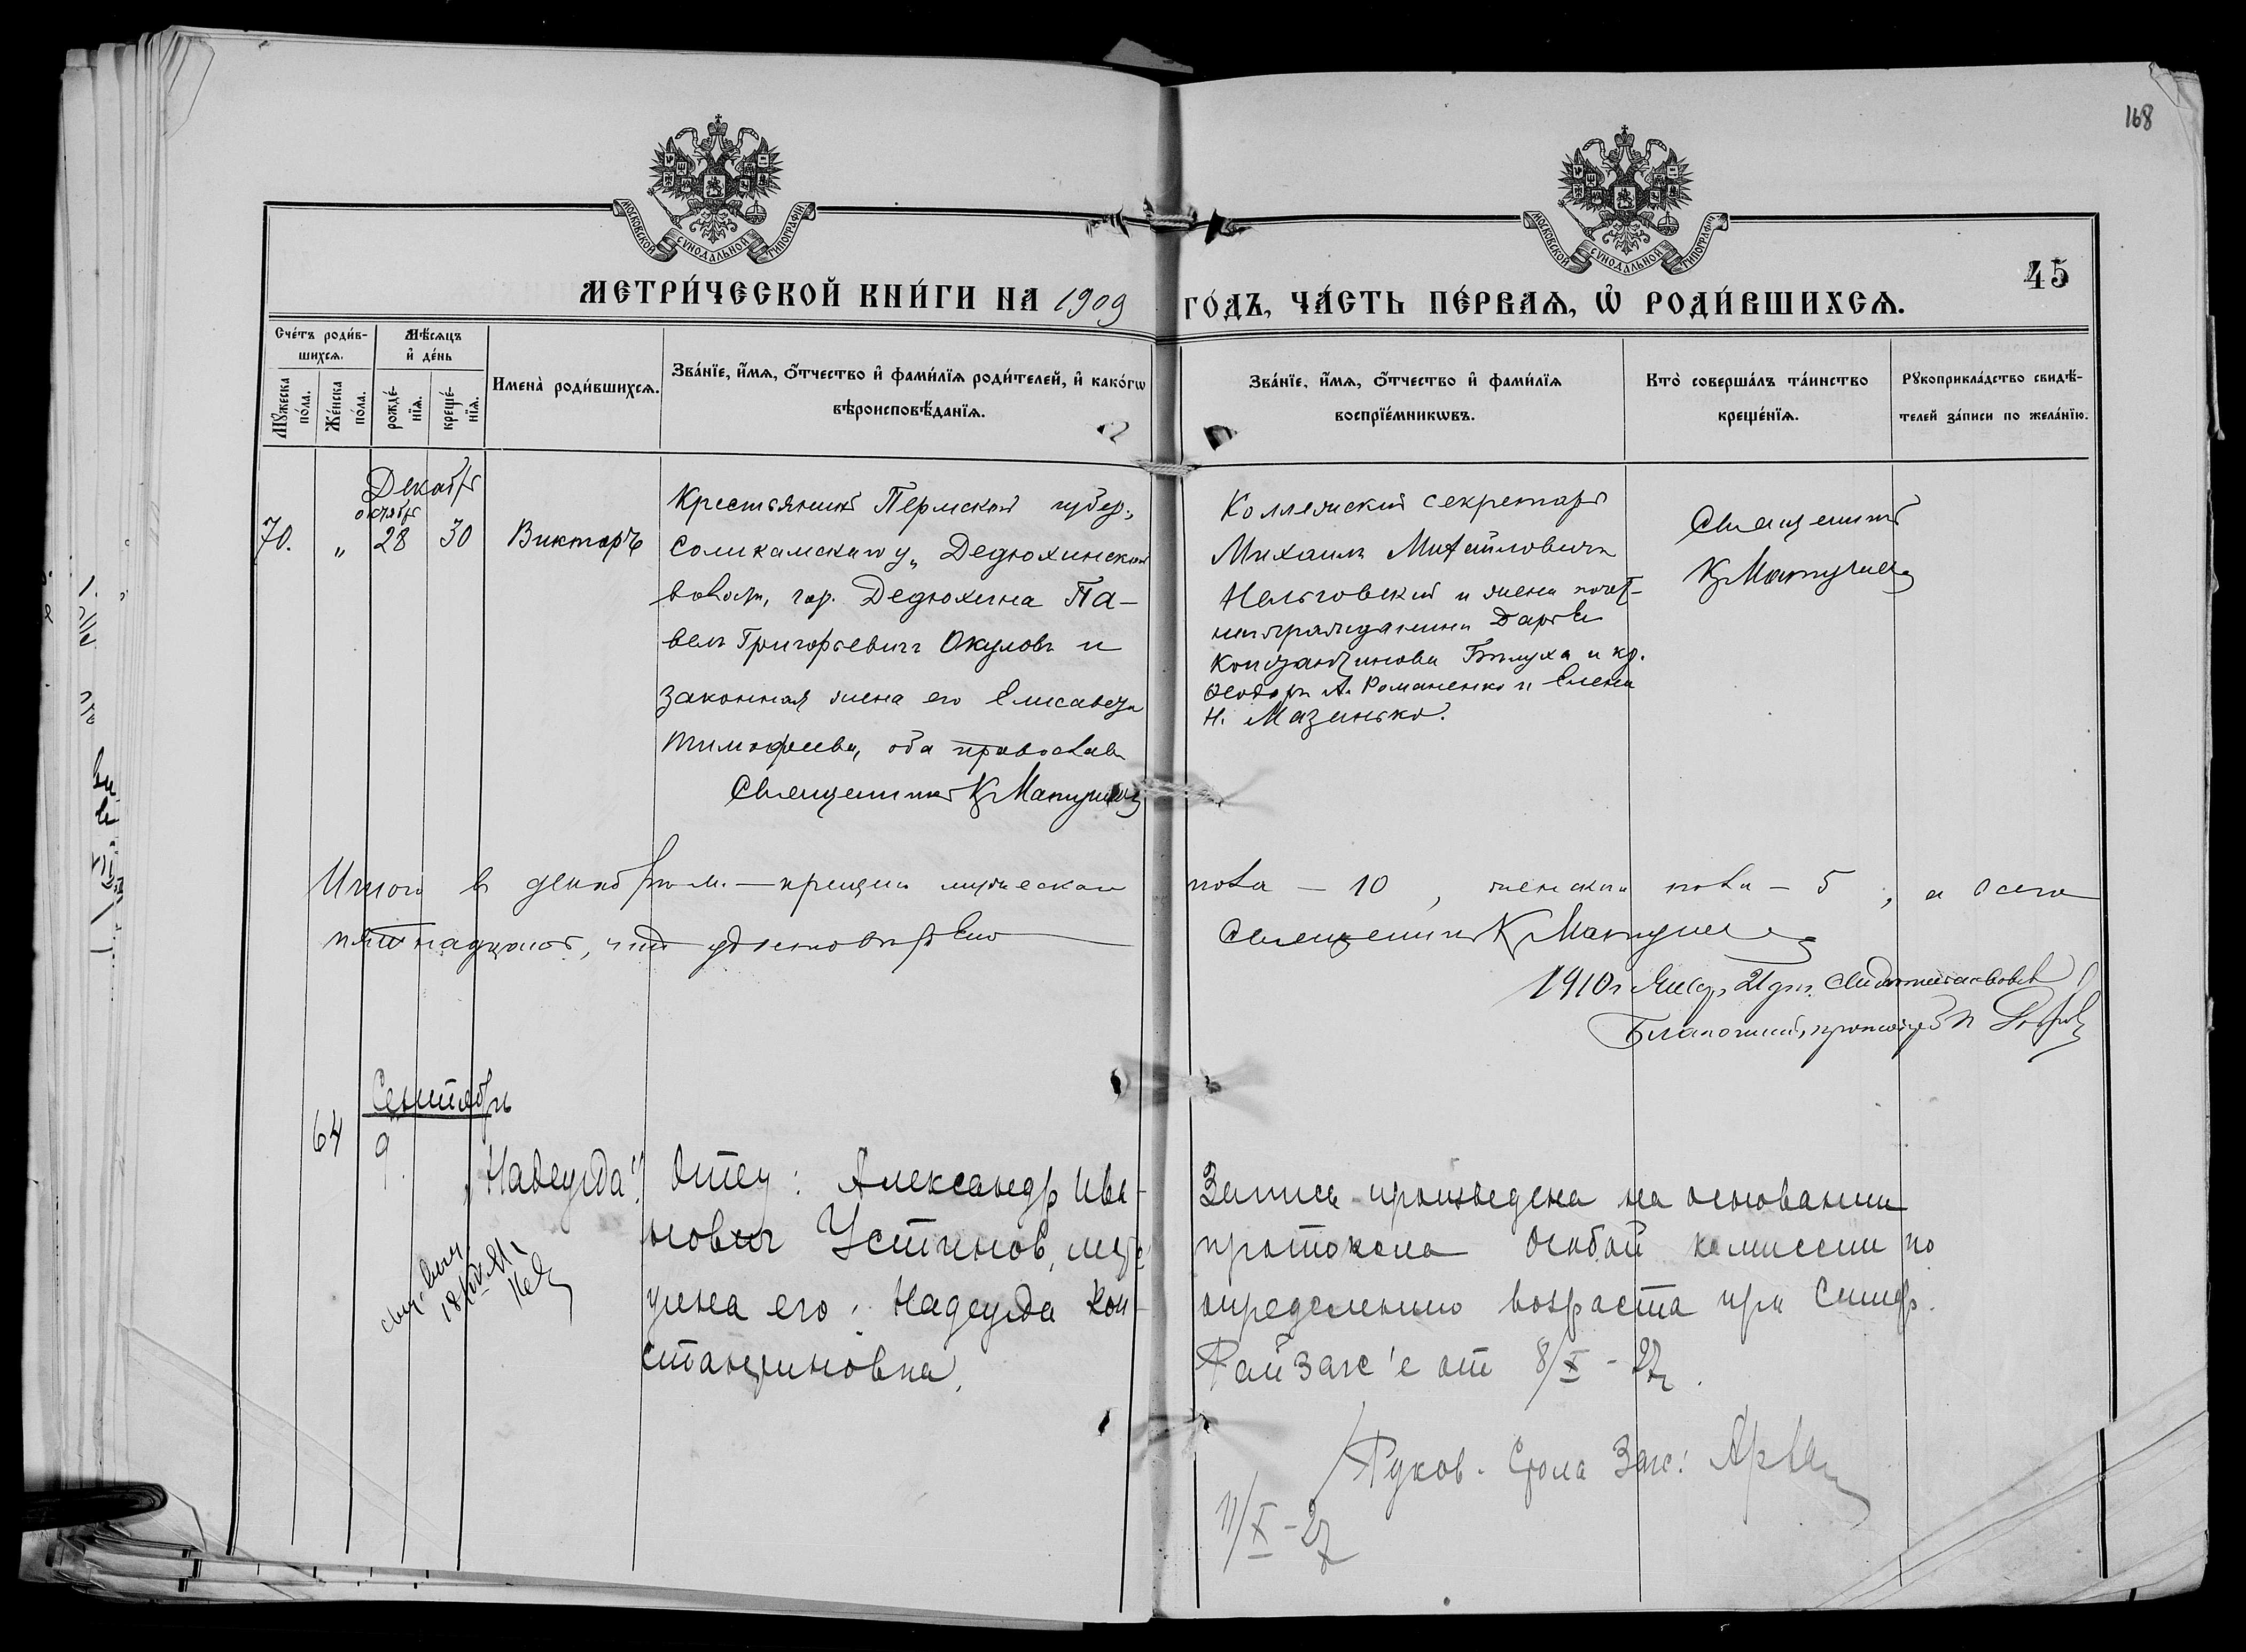 168
МОСКОВСКОЙ СѴНОДАЛЬНОЙ ТИПОГРАФІИ
МОСКОВСКОЙ СѴНОДАЛЬНОЙ ТИПОГРАФІИ
45
МЕТРИ́ЧЕСКОЙ КНИ́ГИ НА 1909 ГО́ДЪ, ЧА́СТЬ ПЕ́РВАѦ, Ѡ҆ РОДИ́ВШИХСѦ.
Сче́тъ роди́в-
шихсѧ.
Мѣ́сѧцъ
и҆ де́нь
Мꙋ́жеска
по́ла.
Же́нска
по́ла.
рожде́-
нїѧ.
креще́-
нїѧ.
Имена̀ роди́вшихсѧ.
Зва́нїе, и҆́мѧ, ѻ҆́тчество и҆ фами́лїѧ роди́телей, и҆ како́гѡ
вѣроисповѣ́данїѧ.
Зва́нїе, и҆́мѧ, ѻ҆́тчество и҆ фами́лїѧ
воспрїе́мникѡвъ.
Кто̀ соверша́лъ та́инство
креще́нїѧ.
Рꙋкоприкла́дство свидѣ́-
телей за́писи по жела́нїю.
Декабрь
октябрь
70. „ 28 30 Викторъ
Крестьянинъ Пермской губер.,
Соликамскаго у., Дедюхинской
волост, гор. Дедюхина Па-
велъ Григорьевичъ Окуловъ и
законная жена его Елисавета
Тимофеева, оба православ
Священникъ К Мапушев
Коллежскій секретарь
Михаилъ Михайловичъ
и жена почет-
гражданина Дарья
Константинова Белуха и кр.
Феодоръ А. Романенко и Елена
Н. Мазинько.
Священникъ
Итого в декабрѣ м. — крещено мужескаго пола — 10, женскаго пола — 5, а всего
пятнадцать, что удостоверяю Священникъ К
1910 г. Янв. 21 дн. свидетельствовалъ
Благочинный, протоіерей
Сентябрь
64 9
„Надежда".
Отец: Александр Ива-
нович Устинов,
жена его: Надежда Кон-
стантиновна.
Запись произведена на основании
протокола особой комиссии по
определению возраста при Симф.
РайЗагс'е от 8/X - 27.
Руков. Стола Загс:
11/X - 27